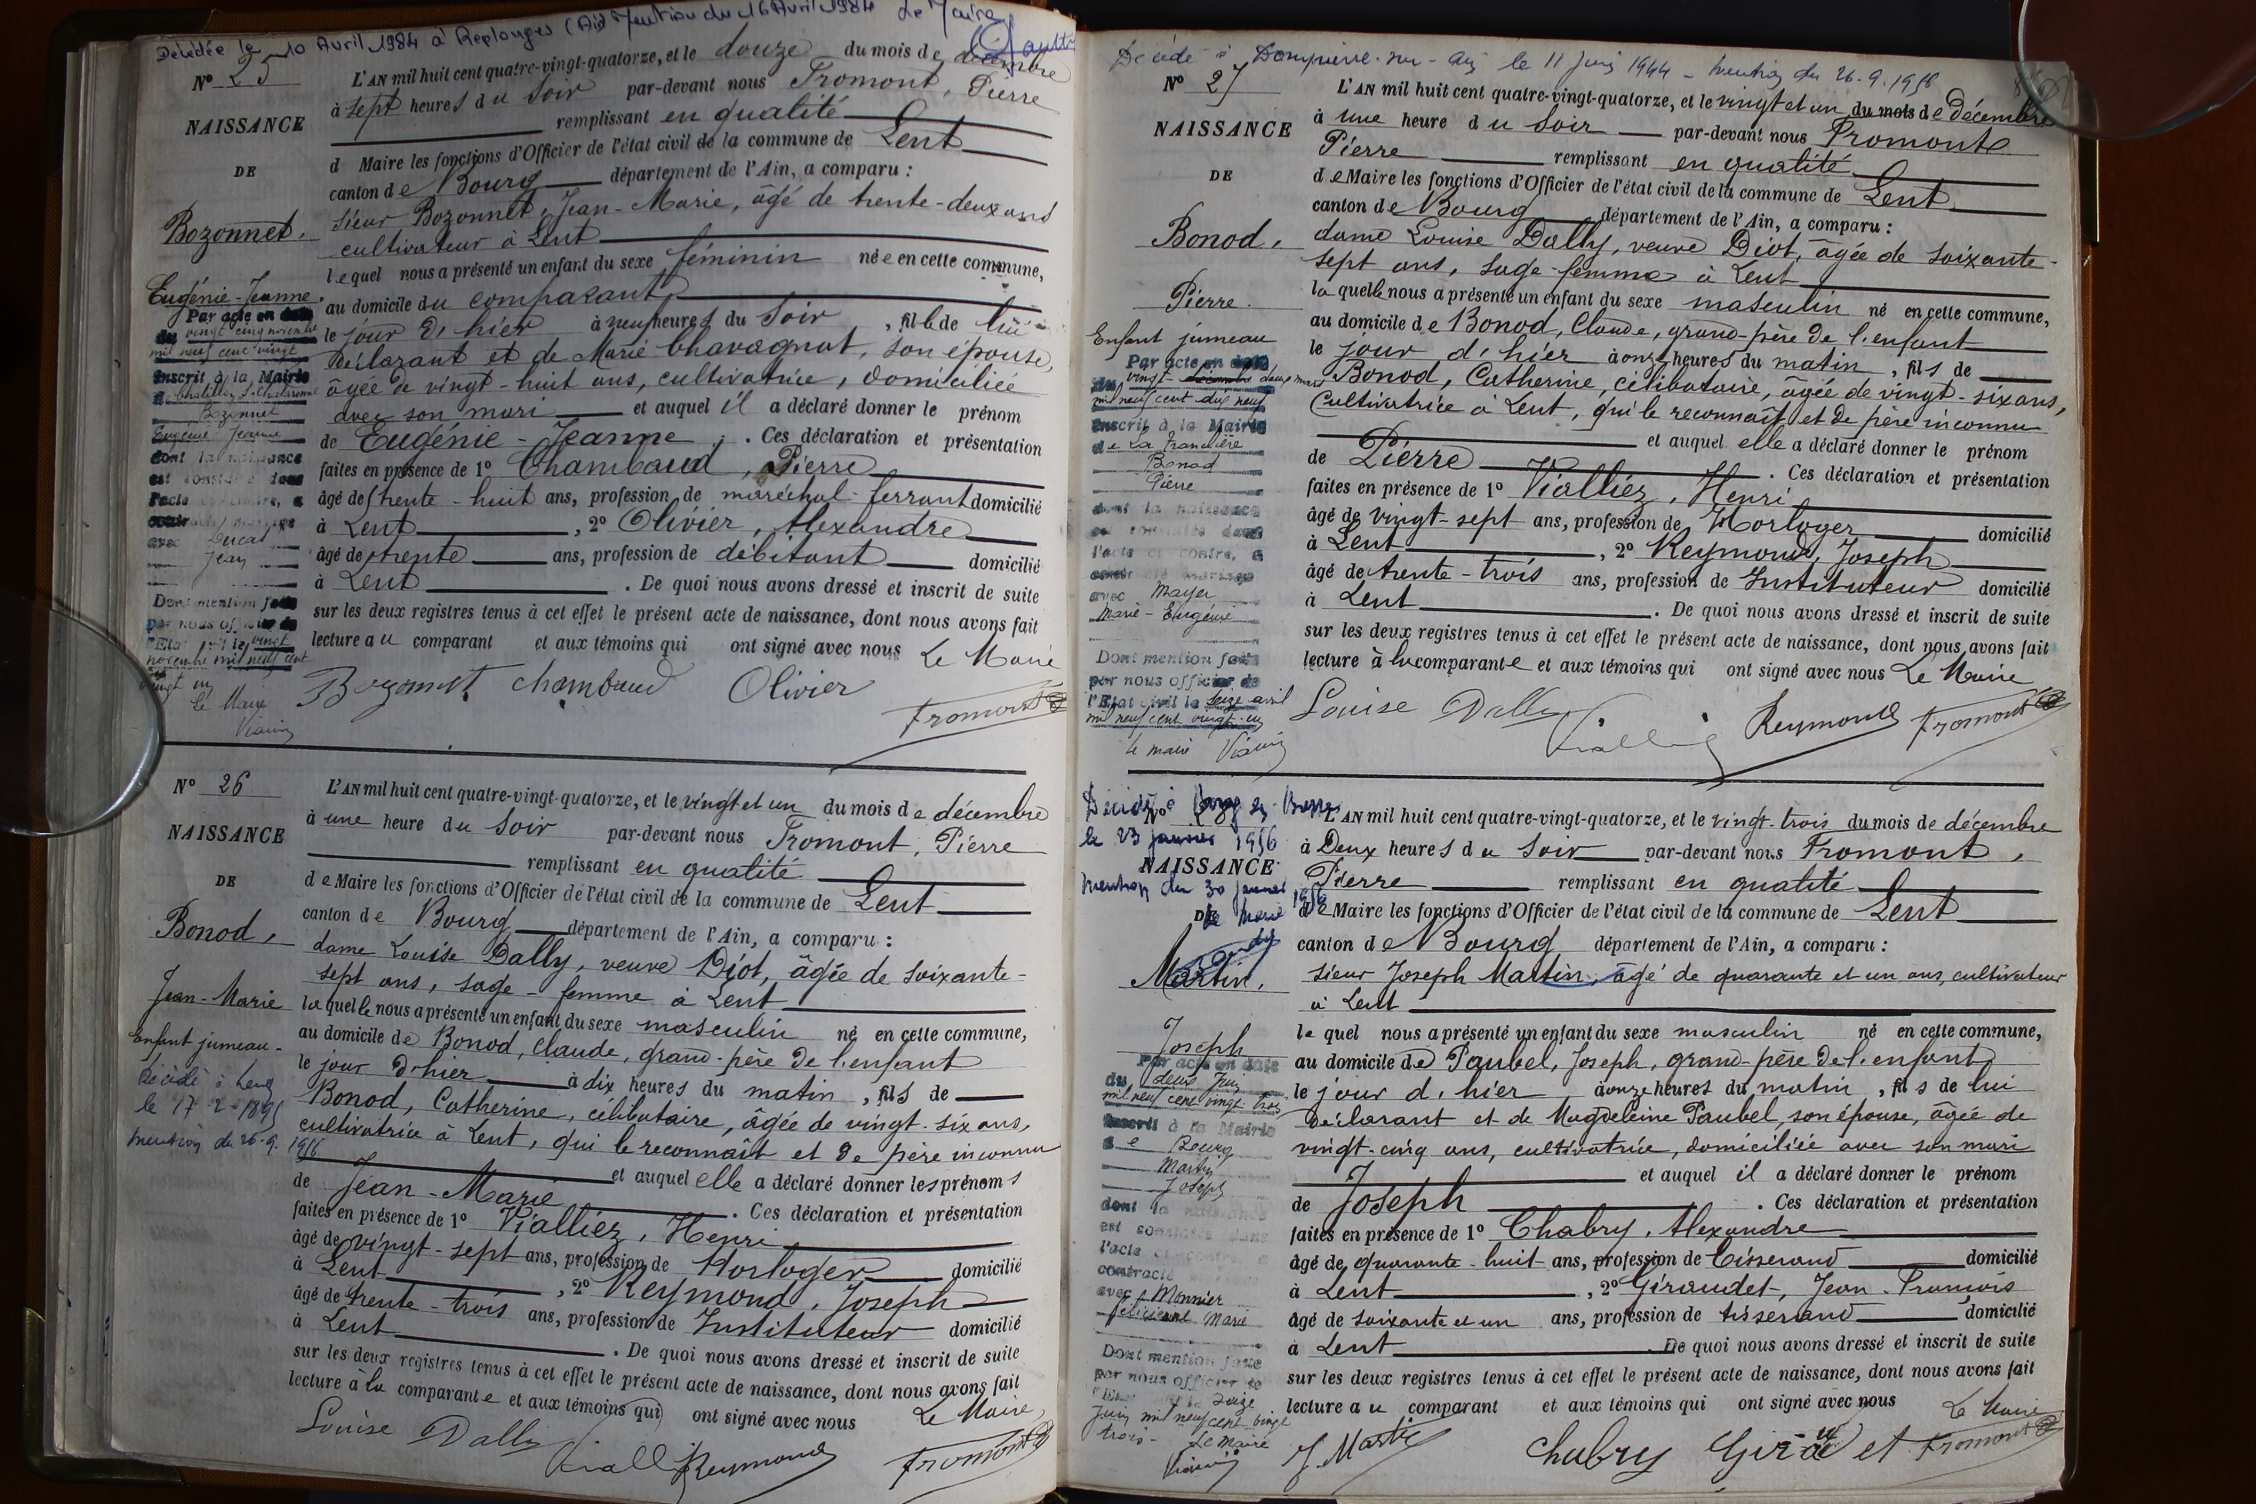 Décédée le 10 Avril 1984 à Replonges (Ain) Mention du 16 Avril 1984 Le Maire
N° 25
NAISSANCE
DE
Bozonnet,
Eugénie-Jeanne.
Par acte en date
du vingt cinq novembre
mil neuf cent vingt
inscrit à la Mairie
de Chatillon s/ Chalaronne
Bozonnet
Eugénie Jeanne
dont la naissance
est constatée dans
l'acte ci-contre, a
contracté mariage
avec Ducat
Jean
Dont mention faite
par nous officier de
l'Etat civil le vingt
novembre mil neuf cent
vingt un
Le Maire
L'AN mil huit cent quatre-vingt-quatorze, et le douze du mois de décembre
à sept heures du soir par-devant nous Fromont, Pierre
remplissant en qualité
d Maire les fonctions d'Officier de l'état civil de la commune de Lent
canton de Bourg département de l'Ain, a comparu :
sieur Bozonnet, Jean-Marie, âgé de trente-deux ans
cultivateur à Lent
lequel nous a présenté un enfant du sexe féminin née en cette commune,
au domicile du comparant
le jour d'hier à neuf heures du soir, fille de lui
déclarant et de Marie Chavagnat, son épouse,
âgée de vingt-huit ans, cultivatrice, domiciliée
avec son mari et auquel il a déclaré donner le prénom
de Eugénie-Jeanne. Ces déclaration et présentation
faites en présence de 1° Chambaud, Pierre
âgé de trente-huit ans, profession de maréchal-ferrant domicilié
à Lent, 2° Olivier, Alexandre
âgé de trente ans, profession de débitant domicilié
à Lent. De quoi nous avons dressé et inscrit de suite
sur les deux registres tenus à cet effet le présent acte de naissance, dont nous avons fait
lecture au comparant et aux témoins qui ont signé avec nous Le Maire
Bozonnet Chambaud Olivier Fromont
N° 26
NAISSANCE
DE
Bonod,
Jean-Marie
Enfant jumeau
Décédé à Lent
le 17-2-1895
mention du 26-9-1956
L'AN mil huit cent quatre-vingt-quatorze, et le vingt et un du mois de décembre
à une heure du soir par-devant nous Fromont, Pierre
remplissant en qualité
de Maire les fonctions d'Officier de l'état civil de la commune de Lent
canton de Bourg département de l'Ain, a comparu :
dame Louise Dally, veuve Diot, âgée de soixante-
sept ans, sage-femme à Lent
laquelle nous a présenté un enfant du sexe masculin né en cette commune,
au domicile de Bonod, Claude, grand-père de l'enfant
le jour d'hier à dix heures du matin, fils de
Bonod, Catherine, célibataire, âgée de vingt-six ans,
cultivatrice à Lent, qui le reconnaît et de père inconnu
et auquel elle a déclaré donner les prénoms
de Jean-Marie. Ces déclaration et présentation
faites en présence de 1° Vialliez, Henri
âgé de vingt-sept ans, profession de Horloger domicilié
à Lent, 2° Reymond, Joseph
âgé de trente-trois ans, profession de Instituteur domicilié
à Lent. De quoi nous avons dressé et inscrit de suite
sur les deux registres tenus à cet effet le présent acte de naissance, dont nous avons fait
lecture à la comparante et aux témoins qui ont signé avec nous Le Maire
Louise Dally Reymond Fromont
Décédé à Dompierre-sur-Ain le 11 juin 1944 - Mention du 26.9.1956
N° 27
NAISSANCE
DE
Bonod,
Pierre.
Enfant jumeau
Par acte en date
du vingt mars
mil neuf cent dix neuf
inscrit à la Mairie
de La Tranclière
Bonod
Pierre
dont la naissance
est constatée dans
l'acte ci-contre, a
contracté mariage
avec Mayer
Marie-Eugénie
Dont mention faite
par nous officier de
l'Etat civil le seize avril
mil neuf cent vingt-un
le maire
L'AN mil huit cent quatre-vingt-quatorze, et le vingt et un du mois de décembre
à une heure du soir par-devant nous Fromont
Pierre remplissant en qualité
de Maire les fonctions d'Officier de l'état civil de la commune de Lent
canton de Bourg département de l'Ain, a comparu :
dame Louise Dally, veuve Diot, âgée de soixante-
sept ans, sage-femme à Lent
laquelle nous a présenté un enfant du sexe masculin né en cette commune,
au domicile de Bonod, Claude, grand-père de l'enfant
le jour d'hier à onze heures du matin, fils de
Bonod, Catherine, célibataire, âgée de vingt-six ans,
cultivatrice à Lent, qui le reconnaît et de père inconnu
et auquel elle a déclaré donner le prénom
de Pierre. Ces déclaration et présentation
faites en présence de 1° Vialliez, Henri
âgé de vingt-sept ans, profession de Horloger domicilié
à Lent, 2° Reymond, Joseph
âgé de trente-trois ans, profession de Instituteur domicilié
à Lent. De quoi nous avons dressé et inscrit de suite
sur les deux registres tenus à cet effet le présent acte de naissance, dont nous avons fait
lecture à la comparante et aux témoins qui ont signé avec nous Le Maire
Louise Dally Reymond Fromont
Décédé à Bourg en Bresse
le 23 janvier 1956
N°
NAISSANCE
Mention du 30 janvier 1956
Le Maire
DE
Martin,
Joseph
Par acte en date
du deux Juin
mil neuf cent vingt trois
inscrit à la Mairie
de Bourg
Martin
Joseph
dont la naissance
est constatée dans
l'acte ci-contre, a
contracté
avec Monnier
Félicienne Marie
Dont mention faite
par nous officier de
l'Etat civil le seize
Juin mil neuf cent vingt
trois - Le Maire
L'AN mil huit cent quatre-vingt-quatorze, et le vingt-trois du mois de décembre
à Deux heures du soir par-devant nous Fromont,
Pierre remplissant en qualité
de Maire les fonctions d'Officier de l'état civil de la commune de Lent
canton de Bourg département de l'Ain, a comparu :
sieur Joseph Martin, âgé de quarante et un ans, cultivateur
à Lent
lequel nous a présenté un enfant du sexe masculin né en cette commune,
au domicile de Paubel, Joseph, grand-père de l'enfant
le jour d'hier à onze heures du matin, fils de lui
déclarant et de Magdeleine Paubel, son épouse, âgée de
vingt-cinq ans, cultivatrice, domiciliée avec son mari
et auquel il a déclaré donner le prénom
de Joseph. Ces déclaration et présentation
faites en présence de 1° Chabry, Alexandre
âgé de quarante-huit ans, profession de Tisserand domicilié
à Lent, 2° Giraudet, Jean-François
âgé de soixante et un ans, profession de tisserand domicilié
à Lent. De quoi nous avons dressé et inscrit de suite
sur les deux registres tenus à cet effet le présent acte de naissance, dont nous avons fait
lecture au comparant et aux témoins qui ont signé avec nous Le Maire
J. Martin Chabry Giraudet Fromont